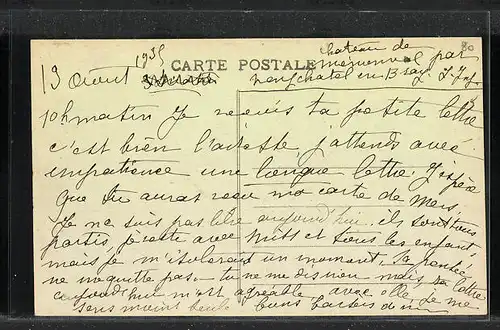 80
1935 CARTE POSTALE chateau de
13 Aout mesnerval par
neufchatel en Bray S. Inf
10h matin Je reçois ta petite lettre
c'est bien l'adresse j'attends avec
impatience une longue lettre. J'espère
que tu auras reçu ma carte de Mers.
Je ne suis pas libre aujourd'hui. ils sont tous
partis, je reste avec et tous les enfants,
mais je m'isolerai un moment. Ta pensée
ne me quitte pas - tu ne me dis rien mais ta lettre
aujourd'hui m'est agréable, avec elle, je me
sens moins seule bons